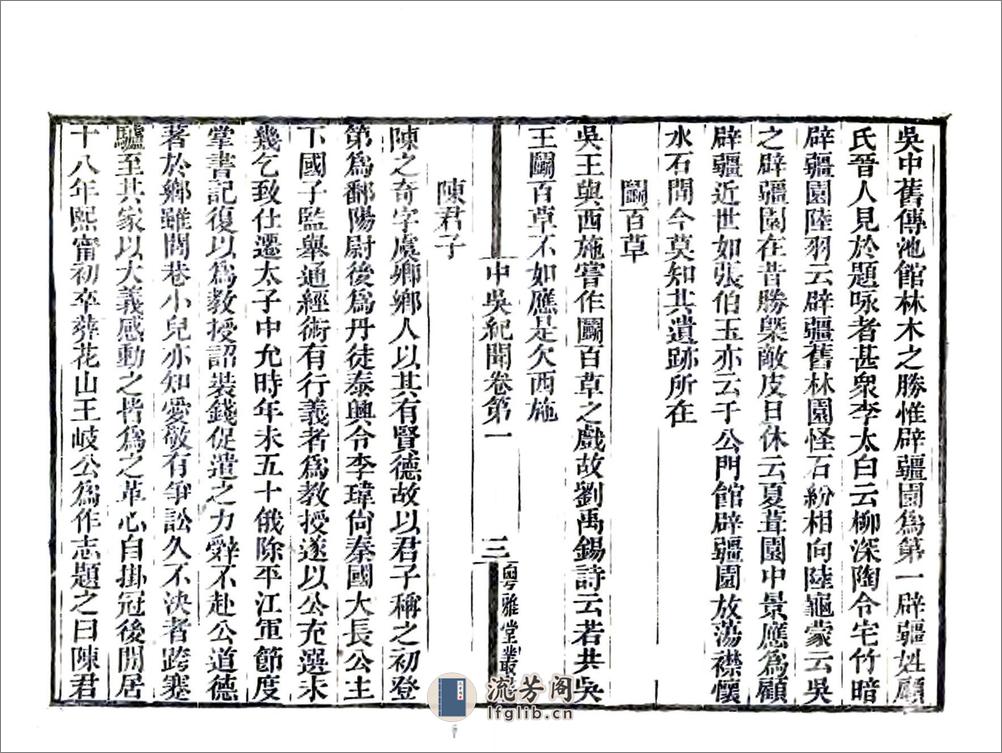 吳中舊傳池館林木之勝惟辟疆園爲第一辟疆姓顧
氏晉人見於題咏者甚衆李太白云柳深陶令宅竹暗
辟疆園陸羽云辟疆舊林園怪石紛相向陸龜蒙云吳
之辟疆園在昔勝槩敵皮日休云夏葺園中景應爲顧
辟疆近世如張伯玉亦云于公門館辟疆園放蕩襟懷
水石間今莫知其遺跡所在
鬭百草
吳王與西施嘗作鬭百草之戲故劉禹錫詩云若共吳
王鬭百草不如應是欠西施
中吳紀聞卷第一
三
粵雅堂叢
陳君子
陳之奇字虞卿鄉人以其有賢德故以君子稱之初登
第爲鄱陽尉後爲丹徒泰興令李瑋尙秦國大長公主
下國子監舉通經術有行義者爲教授遂以公充選未
幾乞致仕遷太子中允時年未五十俄除平江軍節度
掌書記復以爲教授詔裝錢促遣之力辭不赴公道德
著於鄉雖閭巷小兒亦知愛敬有爭訟久不決者跨蹇
驢至其家以大義感動之皆爲之革心自掛冠後閒居
十八年熙甯初卒葬花山王岐公爲作志題之曰陳君
流芳阁
lfglib.cn